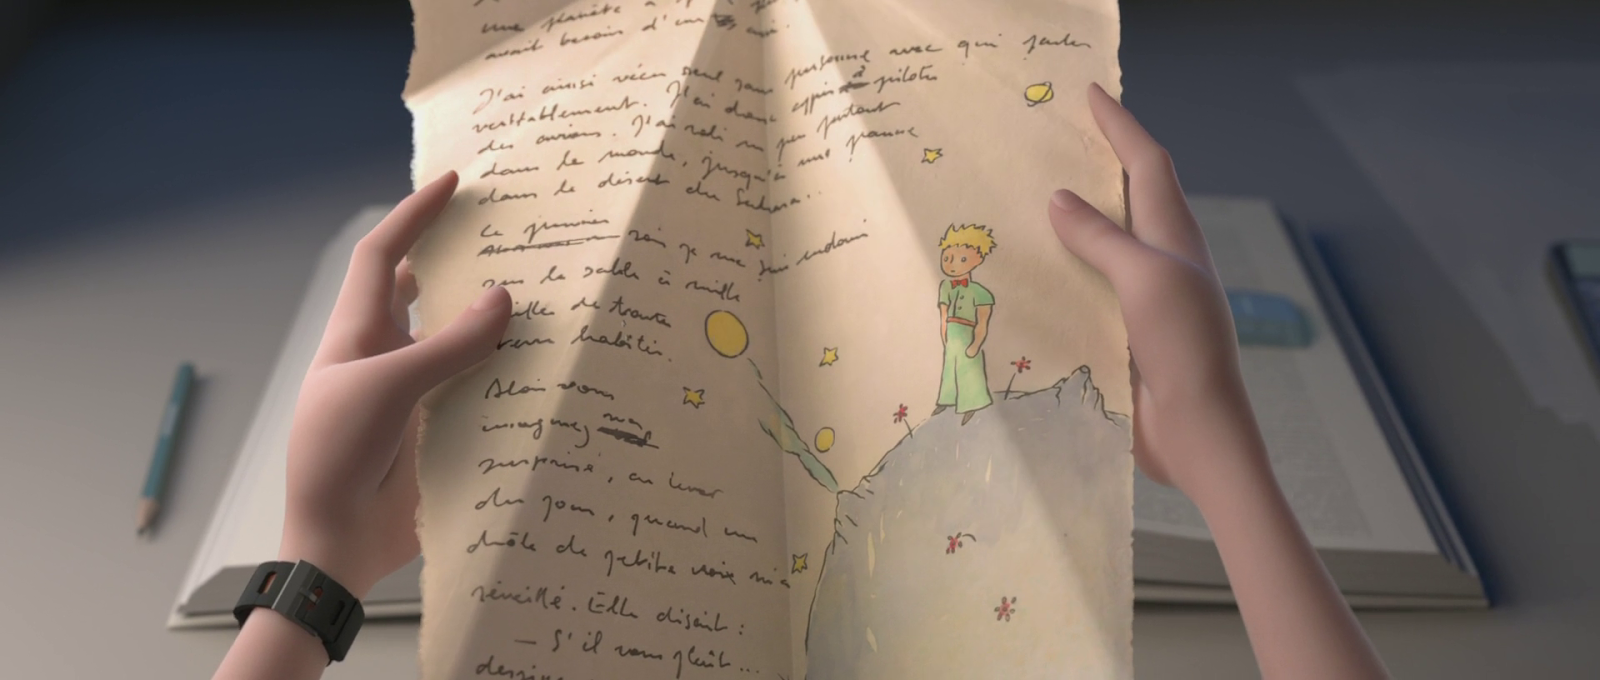 une planète à
avait besoin d'un ami.
J'ai ainsi vécu seul sans personne avec qui parler
véritablement. J'ai donc appris à piloter
des avions. J'ai volé un peu partout
dans le monde, jusqu'à une panne
dans le désert du Sahara...
Le premier soir je me suis endormi
sur le sable à mille
milles de toute
terre habitée.
Alors vous
imaginez ma
surprise, au lever
du jour, quand une
drôle de petite voix m'a
réveillé. Elle disait :
— S'il vous plaît...